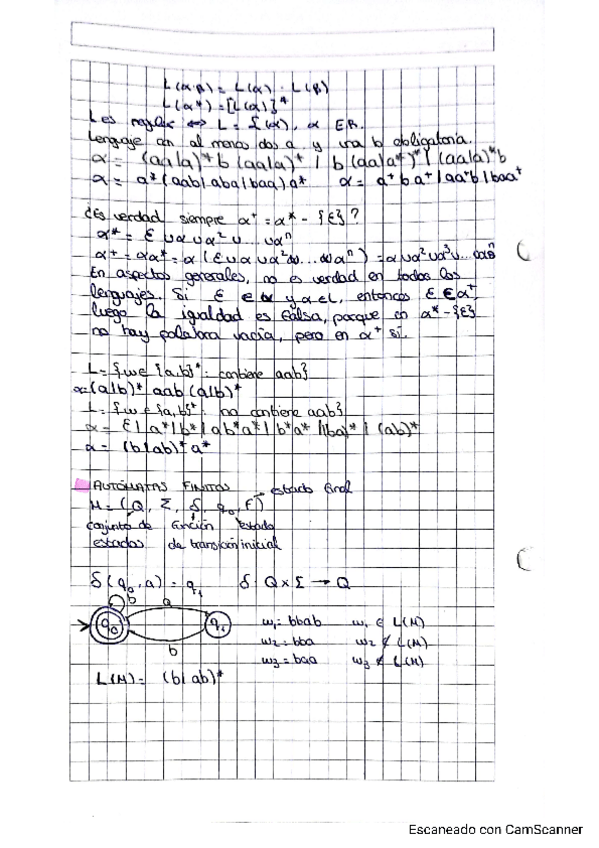 L(α·β) = L(α) · L(β)
L(α*) = [L(α)]*
L es regular ⇔ L = L(α), α E.R.
Lenguaje con al menos dos a y una b obligatoria.
α = (aa|a)*b (aa|a)* | b(aa|a*)* | (aa|a)*b
α = a*(aab|aba|baa)a* α = a⁺ba⁺|aa*b|baa⁺
¿Es verdad siempre α⁺ = α* - {ε}?
α* = ε ∪ α ∪ α² ∪ ... ∪ αⁿ
α⁺ = αα* = α (ε ∪ α ∪ α² ∪ ... ∪ αⁿ) = α ∪ α² ∪ α³ ∪ ... αⁿ
En aspectos generales, no es verdad en todos los
lenguajes. Si ε y α ∈ L, entonces ε ∈ α⁺,
luego la igualdad es falsa, porque en α* - {ε}
no hay palabra vacía, pero en α⁺ sí.
L = {w ∈ {a,b}* : contiene aab}
α = (a|b)* aab (a|b)*
L = {w ∈ {a,b}* : no contiene aab}
α = ε | a* | b* | ab*a* | b*a* | (ba)* | (ab)*
α = (b|ab)* a*
AUTÓMATAS FINITOS
estado final
M = (Q, Σ, δ, q₀, F)
conjunto de función estado
estados de transición inicial
δ(q₀, a) = q₁ δ: Q × Σ → Q
b
a
q₀ q₁
b
w₁ = bbab w₁ ∈ L(M)
w₂ = bba w₂ ∉ L(M)
w₃ = baa w₃ ∉ L(M)
L(M) = (b|ab)*
Escaneado con CamScanner